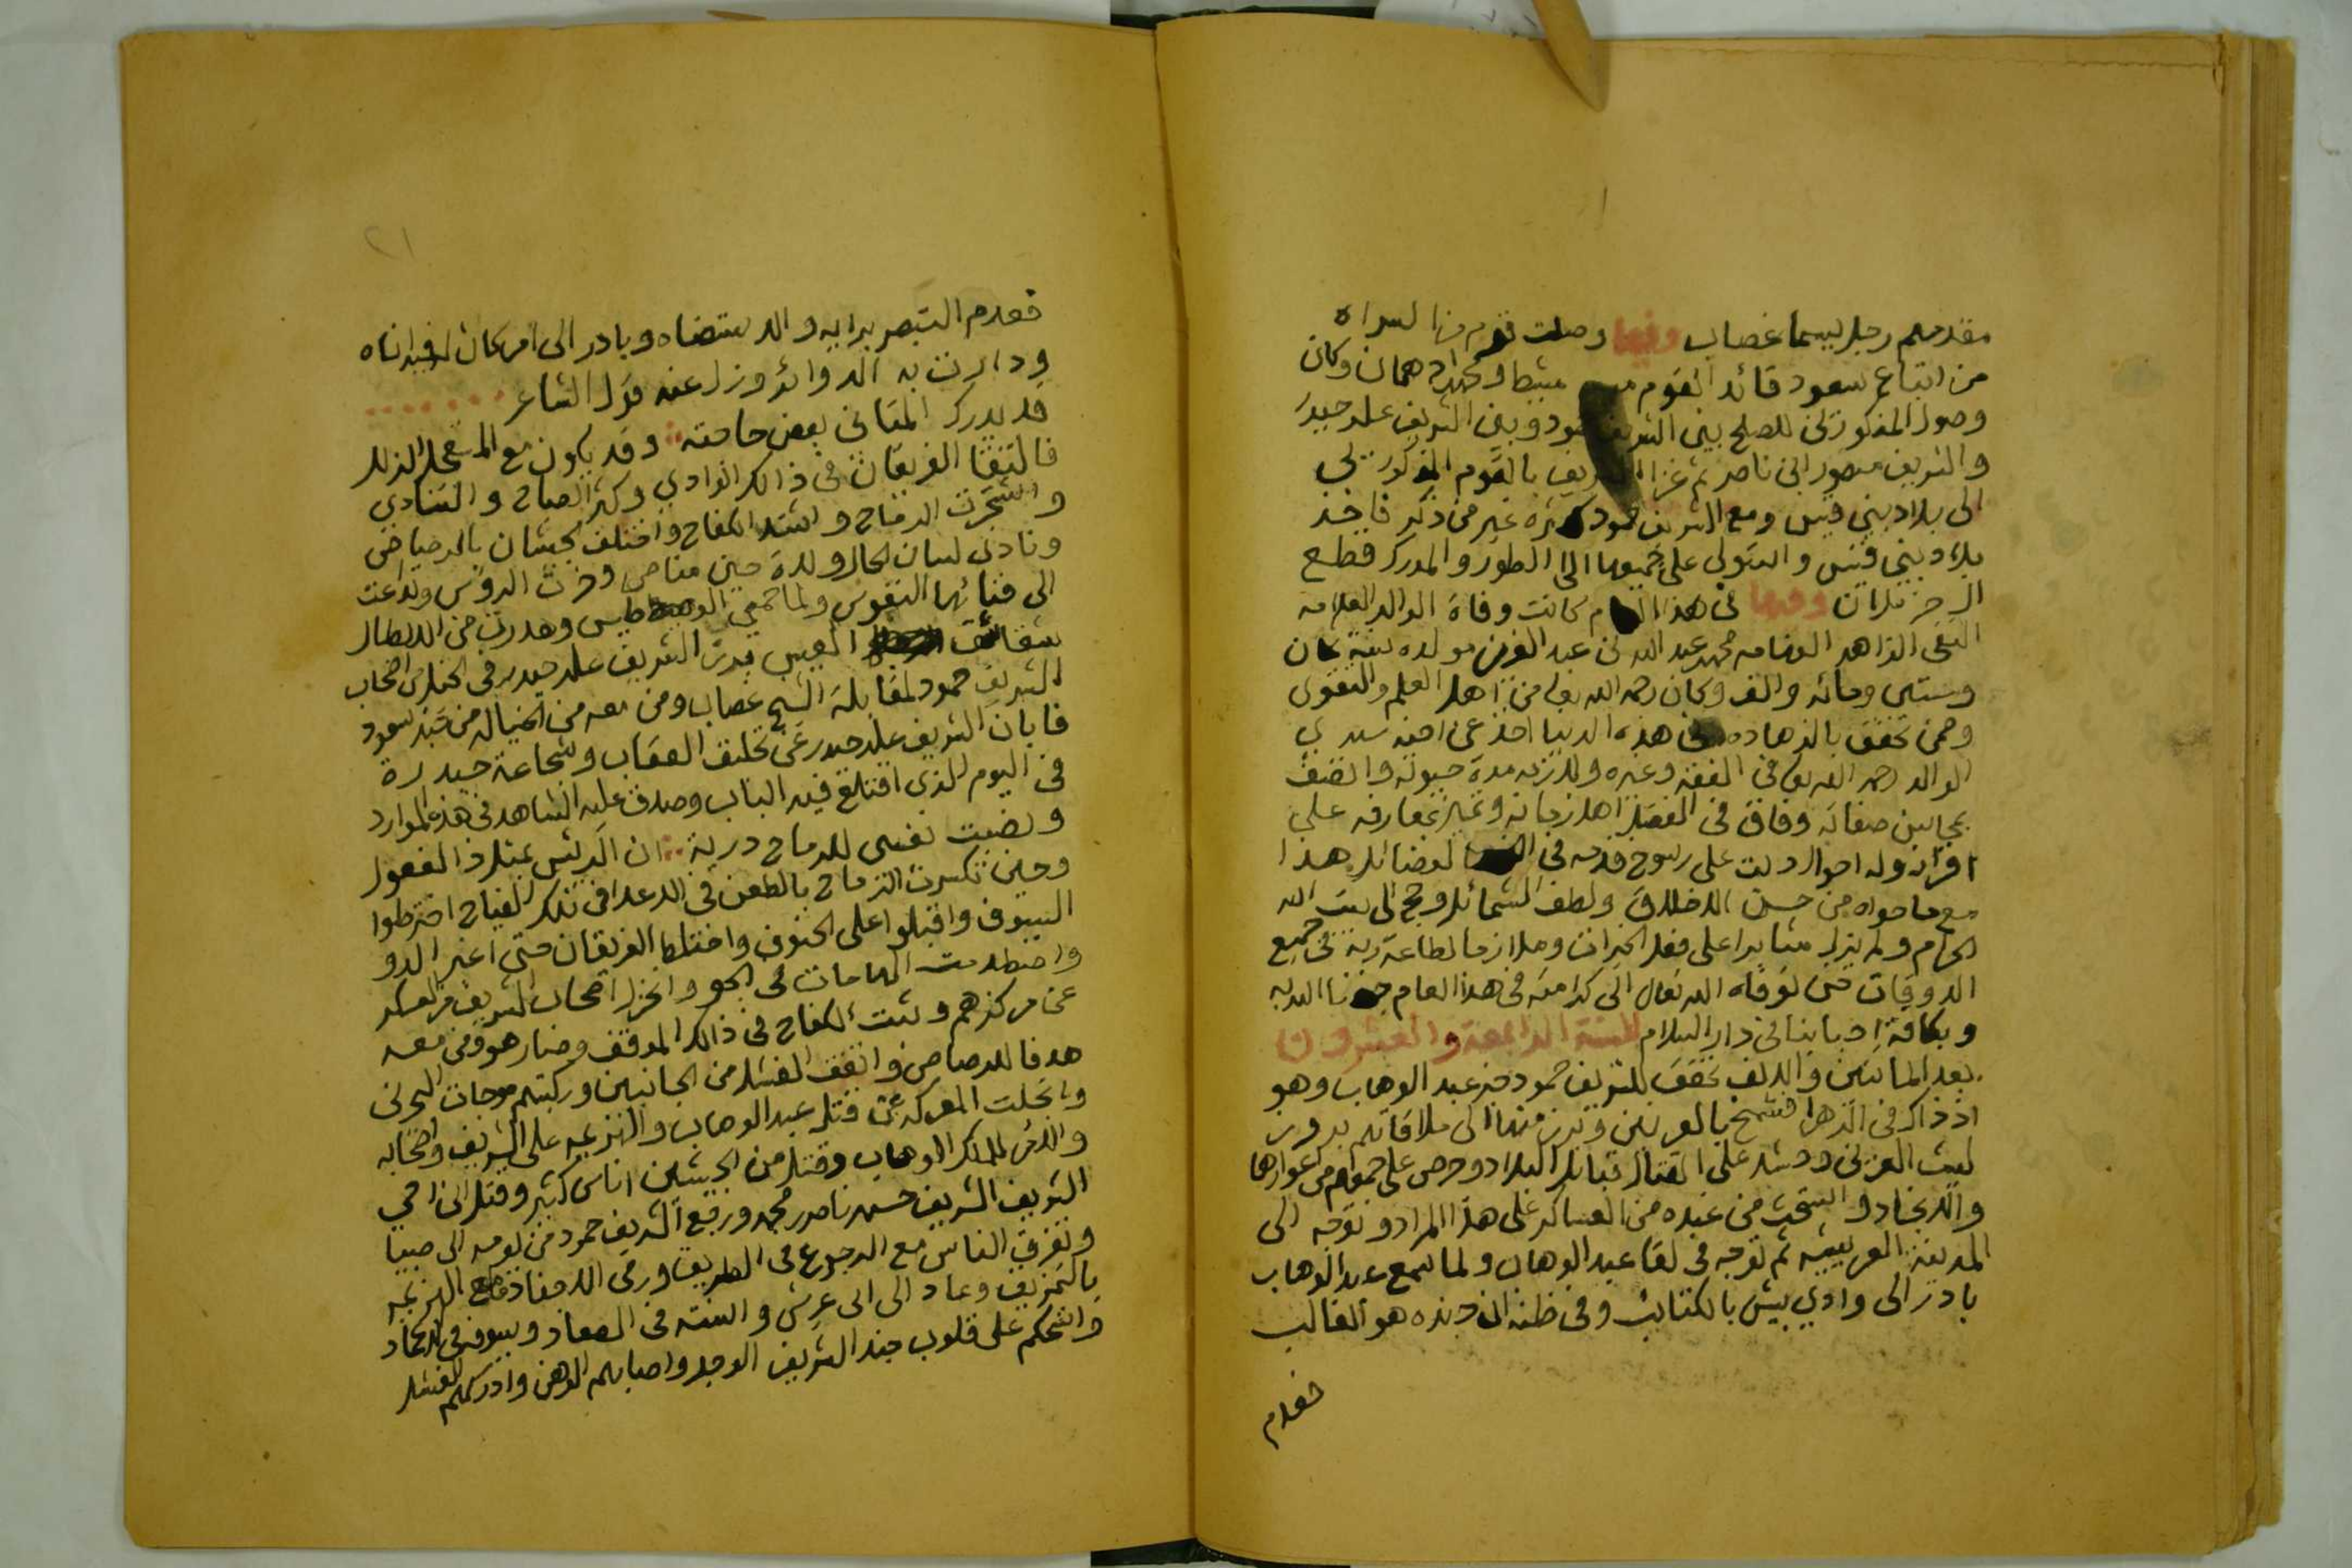 مقدمهم رجل يسما غصاب وفيها وصلت قوم من السراه
من اتباع سعود قائد القوم مشيط ومحمد دهمان وكان
وصول المذكورين للصلح بين الشريف حمود وبين الشريف علي حيدر
والشريف منصور ابن ناصر ثم غزا الشريف بالقوم المذكورين
الى بلاد بني قيس ومع الشريف حمود كثره غير من ذكر فاخذ
بلاد بني قيس واستولى على جميعها الى الطور والمدرك قطع
وفيها في هذا العام كانت وفاة الوالد العلامه
التقي الزاهد محمد عبد الله بن عبد العزيز مولده سنة ثمان
وستين ومائه والف وكان رحمه الله تعالى من اهل العلم والتقوى
وممن تحقق بالزهاده في هذه الدنيا اخذ عن اخيه سيدي
الوالد رحمه الله تعالى في الفقه وغيره ولازمه مدة حيوته واتصف
بمحاسن صفاته وفاق في الفضل اهل زمانه وتميز بمعارفه على
اقرانه وله احوال دلت على رسوخ قدمه في الفضائل هذا
مع ما حواه من حسن الاخلاق ولطف الشمائل وحج الى بيت الله
الحرام ولم يزل مثابرا على فعل الخيرات وملازما لطاعة ربه في جميع
الاوقات حتى توفاه الله تعالى الى كرامته في هذا العام جمعنا الله به
وبكافة احبابنا في دار السلام السنة الرابعة والعشرون
بعد المائتين والالف تحقق للشريف حمود خبر عبد الوهاب وهو
اذ ذاك في الزهرا فشمخ بالعرنين وبرز منها الى ملاقاتهم بروز
ليث العرين وحشد على القتال قبائل البلاد وحرص على جمعهم من اغوارها
والانجاد وانتخب من عنده من العساكر على هذا المراد وتوجه الى
المدينة العريشيه ثم توجه في لقا عبد الوهاب ولما سمع عبد الوهاب
بادر الى وادي بيش بالكتائب وفي ظنه ان جنده هو الغالب
فعدم
٢١
فعدم التبصر برايه والاستضاه وبادر الى امر كان فيه اناه
ودارت به الدوائر وزل عنه قول الشاعر
قد يدرك المتاني بعض حاجته وقد يكون مع المستعجل الزلل
فالتقا الفريقان في ذالك الوادي وكثر الصياح والتنادي
واشتجرت الرماح واشتد الكفاح واختلف الجيشان بالرصاص
ونادى لسان الحال ولات حين مناص وخرت الروس وتداعت
الى فنائها النفوس ولما حمي الوطيس وهدرت من الابطال
شقاشق العيس برز الشريف علي حيدر في الخيل من اصحاب
الشريف حمود لمقابلة الشيخ غصاب ومن معه من الخيالة من جند سعود
فابان الشريف علي حيدر عن تحليق العقاب وشجاعة حيدرة
في اليوم الذي اقتلع فيه الباب وصدق عليه الشاهد في هذه الموارد
ونصبت نفسي للرماح درية ان الرئيس لمثل ذا لفعول
وحين تكسرت الرماح بالطعن في الاعدا في تلك الفياح اخترطوا
السيوف واقبلوا على الحتوف واختلط الفريقان حتى اغبر الدو
واصطدمت الهامات في الجو وانخزل اصحاب الشريف من العسكر
عن مركزهم وثبت الكفاح في ذالك الموقف وصار هو ومن معه
هدفا للرصاص واتفق الفشل من الجانبين وركبتهم موجات البحرين
وانجلت المعركه عن قتل عبد الوهاب والهزيمه على الشريف واصحابه
والامر للملك الوهاب وقتل من الجيشين اناس كثير وقتل ابن اخي
الشريف الشريف حسن ناصر محمد ورجع الشريف حمود من يومه الى صبيا
وتفرق الناس مع الرجوع في الطريق ورمي الاجناد مع الهزيمه
بالتمزيق وعاد الى ابى عريش والسنته في الصعاد وسيوفه في الاغماد
واستحكم على قلوب جند الشريف الوجد واصابهم الوهن وادركهم الفشل